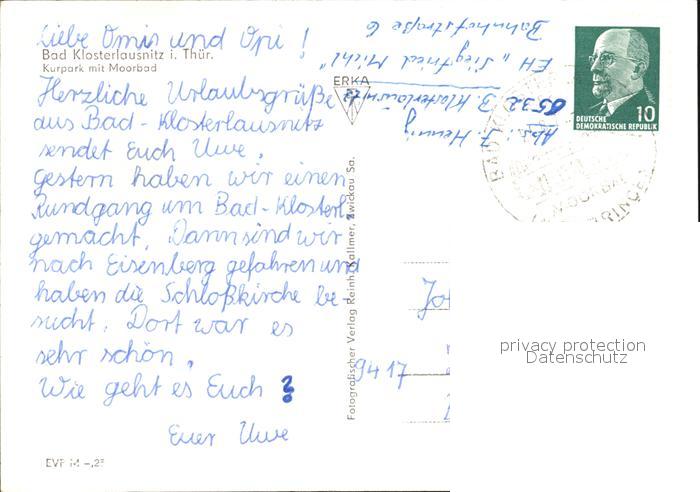 Liebe Omis und Opi !
Bad Klosterlausnitz i. Thür.
Kurpark mit Moorbad
Herzliche Urlaubsgrüße
aus Bad-Klosterlausnitz
sendet Euch Uwe.
Gestern haben wir einen
Rundgang um Bad-Klosterl.
gemacht. Dann sind wir
nach Eisenberg gefahren und
haben die Schloßkirche be
sucht. Dort war es
sehr schön.
Wie geht es Euch ?
Euer Uwe
EVP M -,25
ERKA
Fotografischer Verlag Reinh. Kallmer, Zwickau Sa.
Abs: J. Hennig
6532 B Klosterlausnitz
EH „Siegfried Michl"
Bahnhofstraße 6
10
DEUTSCHE
DEMOKRATISCHE REPUBLIK
BAD
MOORBAD
9417
privacy protection
Datenschutz